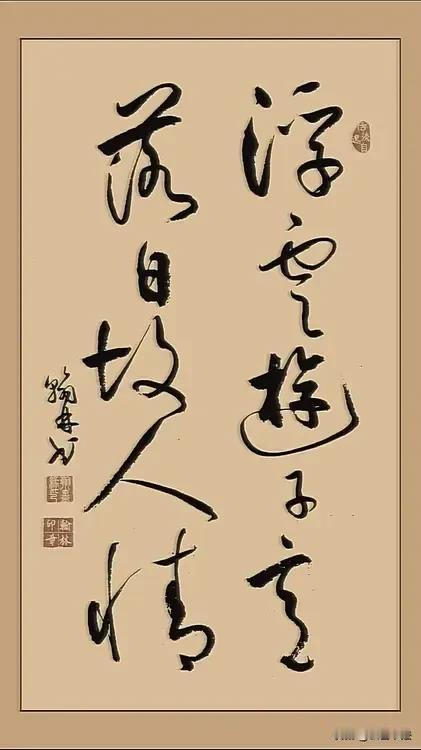 浮雲遊子意
落日故人情
翰林书
翰林印章